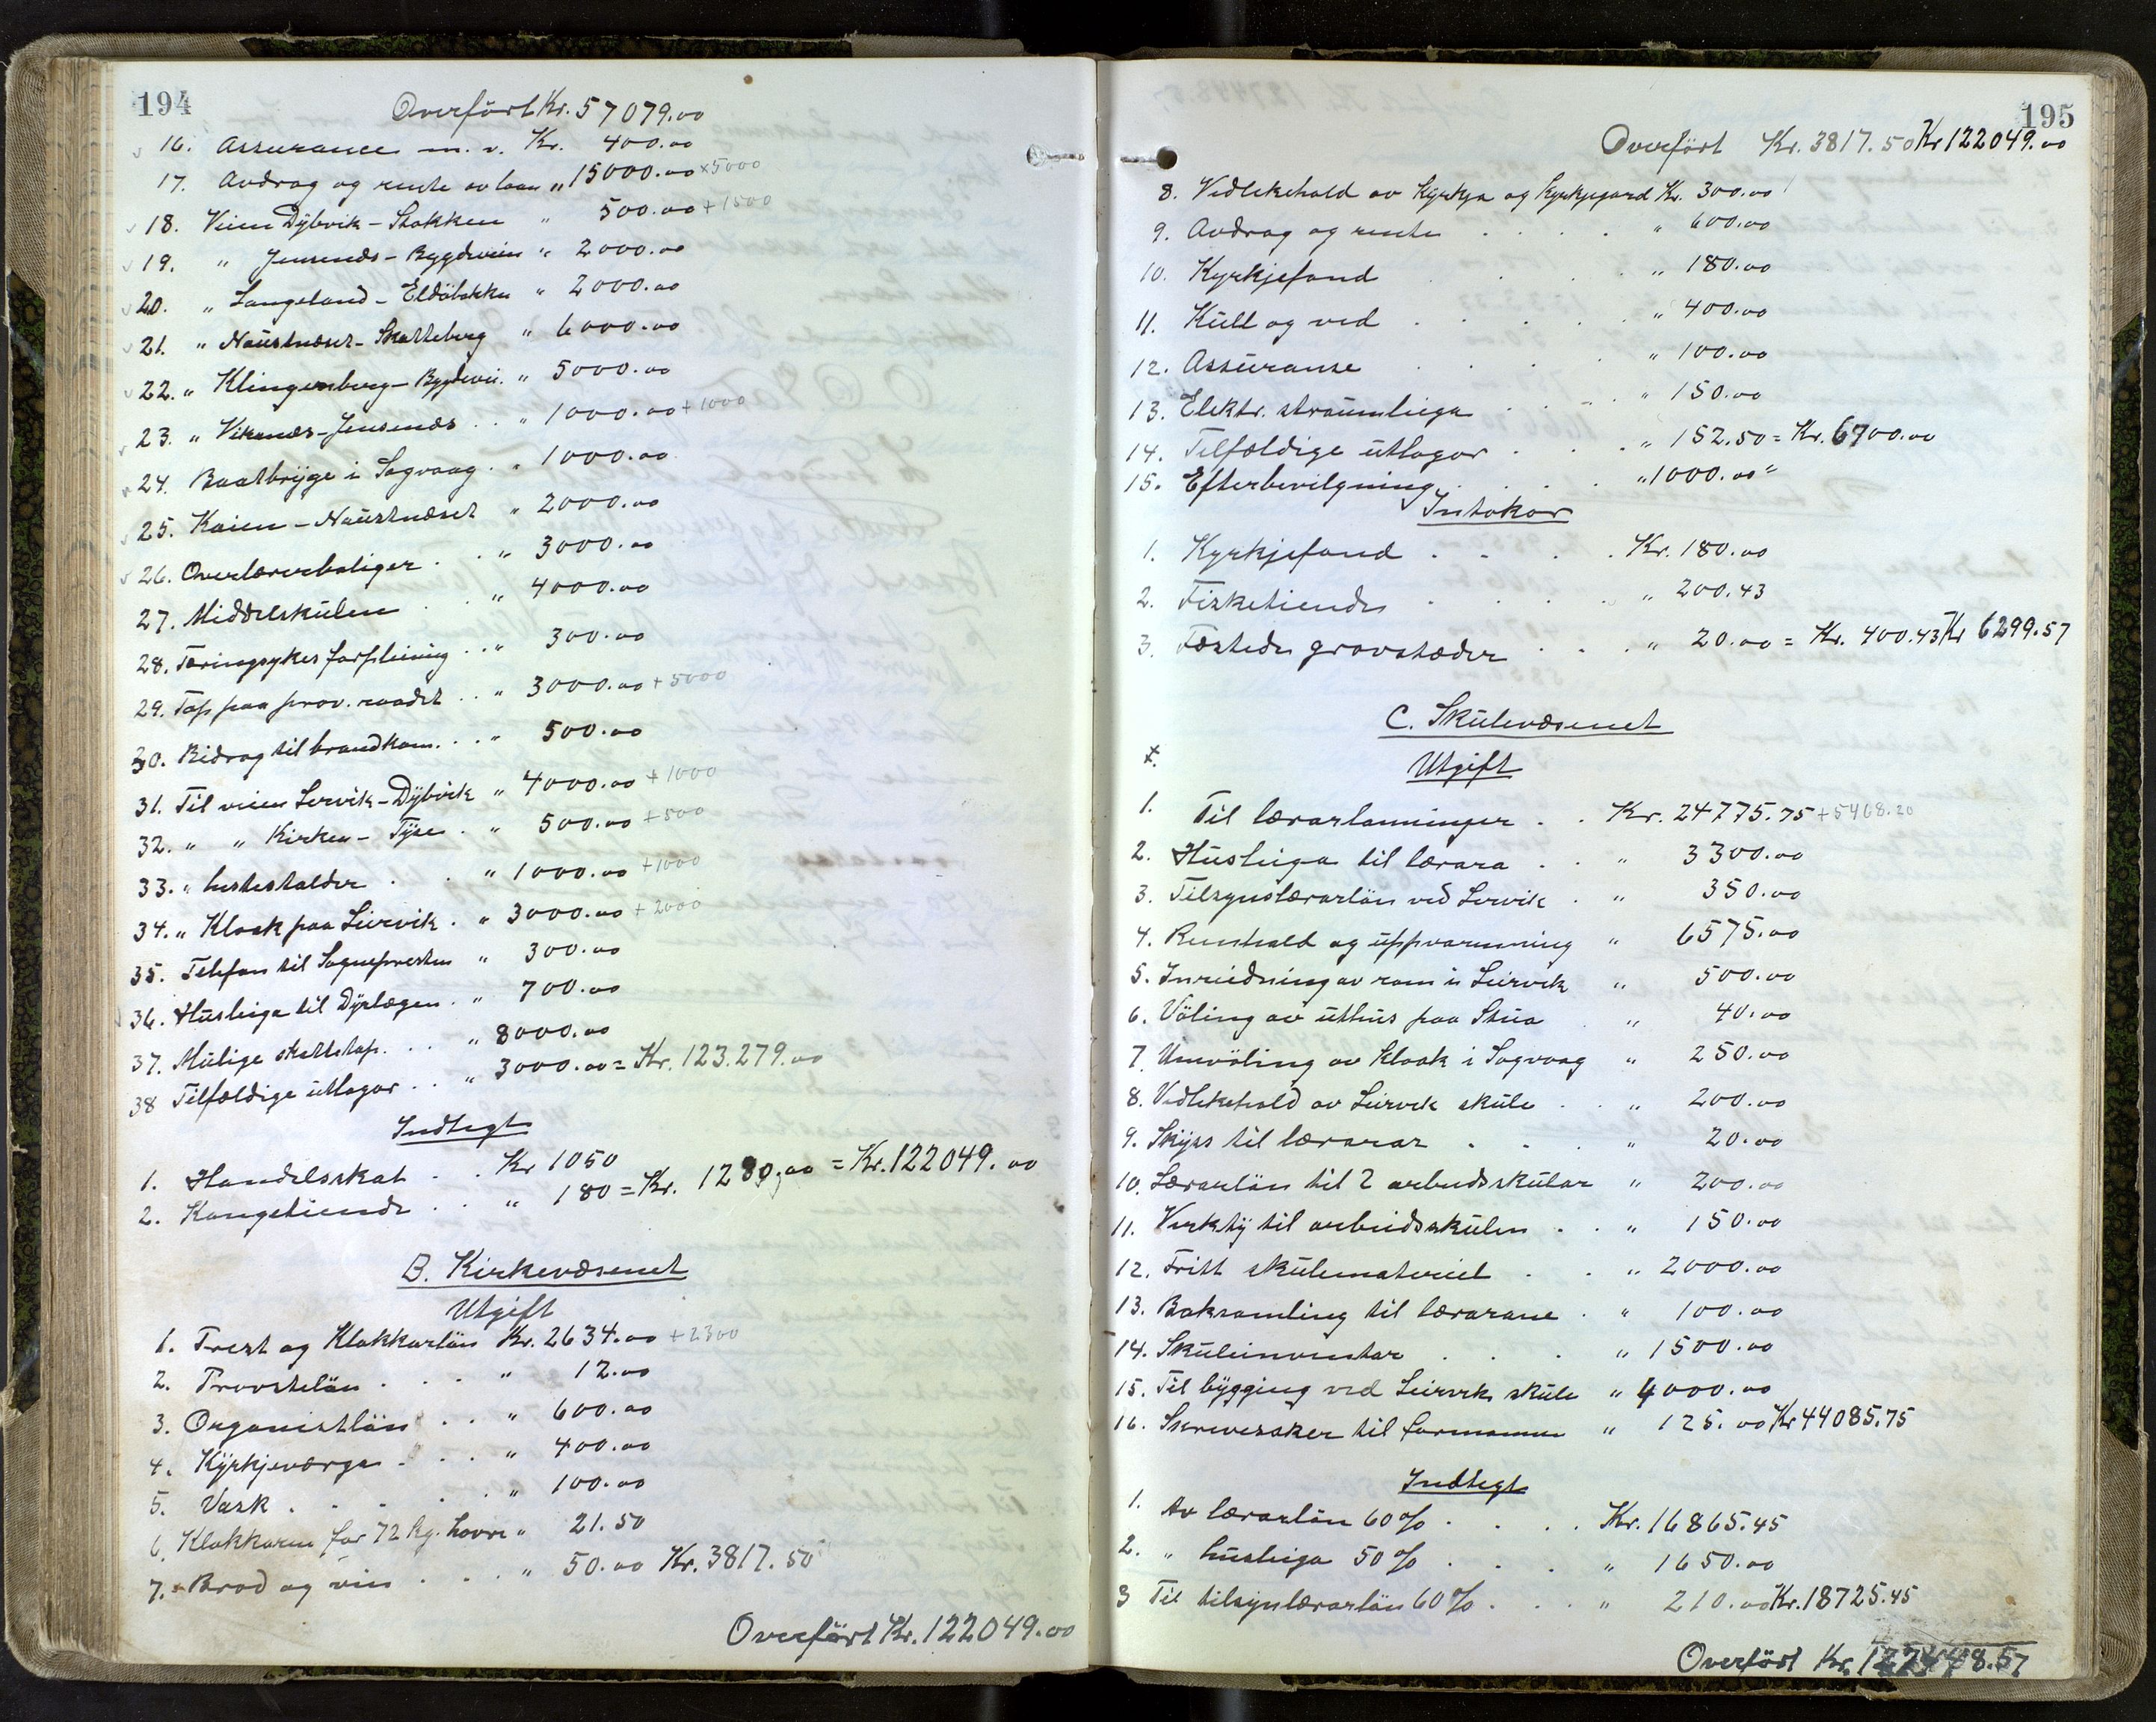 194
Overført Kr. 57079.00
16. Assurance m. v. Kr. 400.00
17. Avdrag og rente av laan " 15000.00 x5000
18. Veien Dybvik - Stokken " 500.00 + 1500
19. " Jensenæs - Bygdeveien " 2000.00
20. " Langeland - Eldøbakka " 2000.00
21. " Naustneset - Skatteberg " 6000.00
22. " Klingenberg - Bygdevei. " 5000.00
23. " Vikanæs - Jensenæs . . " 1000.00 + 1000
24. Baatbrygge i Sagvaag . " 1000.00
25. Kaien - Naustnæset " 2000.00
26. Overlærerboliger . . " 3000.00
27. Middelskulen . . " 4000.00
28. Tæringsykes forpleining . . " 300.00
29. Tap paa prov. raadet . . " 3000.00 + 5000
30. Bidrag til brandkom. . . " 500.00
31. Til veien Lervik - Dybvik " 4000.00 + 1000
32. " " Kirken - Tyse . " 500.00 + 500
33. " hestestalder . . " 1000.00 + 1000
34. " Kloak paa Leirvik . " 3000.00 + 2000
35. Telefon til Sognepresten " 300.00
36. Husleiga til Dyrlægen . " 700.00
37. Mulige skattetap . . . " 8000.00
38 Tilfældige utlagor . . " 3000.00 = Kr. 123.279.00
Indtegt
1. Handelsskat . . Kr 1050
2. Kongetiende . . " 180 = Kr. 1230.00 = Kr. 122049.00
B. Kirkevæsenet
Utgift
1. Prest og Klokkarløn Kr. 2634.00 + 2300
2. Provsteløn . . . " 12.00
3. Organistløn . . " 600.00
4. Kyrkjeværga . . . " 400.00
5. Vask . . . . . " 100.00
6. Klokkaren for 72 kg. havre " 21.50
7. Brød og vin . . . " 50.00 Kr. 3817.50
Overført Kr. 122049.00
195
Overført Kr. 3817.50 Kr 122049.00
8. Vedlikehald av Kyrkja og Kyrkjegard Kr. 300.00
9. Avdrag og rente . . . . " 600.00
10. Kyrkjefond . . " 180.00
11. Kull og ved . . . . " 400.00
12. Assuranse . . . " 100.00
13. Elektr. straumleiga . . . " 150.00
14. Tilfældige utlagor . . . " 152.50 = Kr. 6700.00
15. Efterbevilgning . . . . " 1000.00 "
Intøkor
1. Kyrkjefond . . . . Kr. 180.00
2. Fisketiende . . . . " 200.43
3. Fæstede gravstæder . . . " 20.00 = Kr. 400.43 Kr 6299.57
C. Skulevæsenet
Utgift
1. Til lærarlønninger . . Kr. 24775.75 + 5468.20
2. Husleiga til lærara . . " 3300.00
3. Tilsynslærarløn ved Lervik . " 350.00
4. Reinhald og uppvarmning " 6575.00
5. Innreidning av rom i Leirvik " 500.00
6. Vøling av uthus paa Stua . " 40.00
7. Umvøling av Kloak i Sagvaag " 250.00
8. Vedlikehald av Leirvik skule . . " 200.00
9. Skyss til lærarar . . . " 20.00
10. Lærarløn til 2 arbeidsskular " 200.00
11. Verkty til arbeidsskulen . . " 150.00
12. Fritt skulemateriel . . " 2000.00
13. Boksamling til lærarane . " 100.00
14. Skuleinventar . . . " 1500.00
15. Til bygging ved Leirvik skule " 4000.00
16. Skrivesaker til formannen " 125.00 Kr 44085.75
Indtegt
1. Av lærarløn 60% . . . . Kr. 16865.45
2. " husleiga 50% . . . " 1650.00
3 Til tilsynlærarløn 60% . . . " 210.00 Kr. 18725.45
Overført Kr.